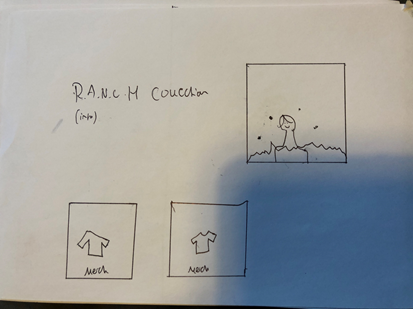 R.A.N.C.H Collection
(intro)
Merch
Merch